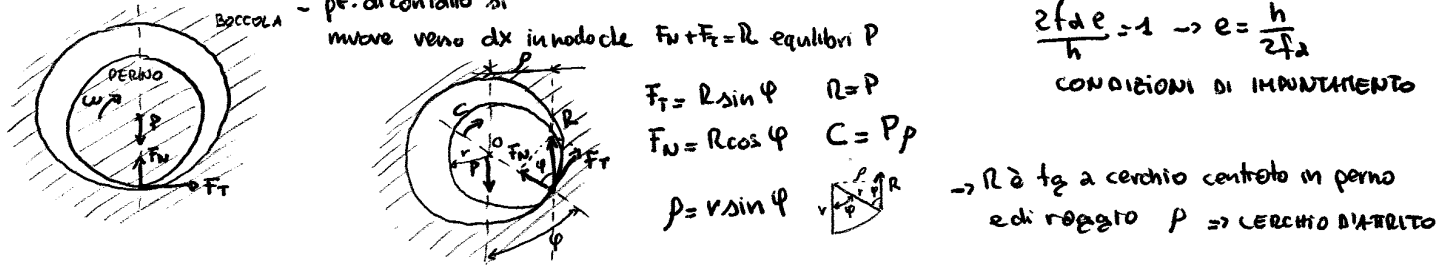 BOCCOLA
- pt. di contatto si
muove verso dx in modo che F_N + F_T = R equilibri P
PERNO
ω
P
F_N
F_T
ρ
C
R
O
r
P
F_N
φ
F_T
φ
F_T = R sin φ R = P
F_N = R cos φ C = Pρ
ρ = r sin φ
ρ
r
r
φ
φ
R
2f_d e / h = 1 -> e = h / 2f_d
CONDIZIONI DI IMPUNTAMENTO
-> R è tg a cerchio centrato in perno
e di raggio ρ => CERCHIO D'ATTRITO